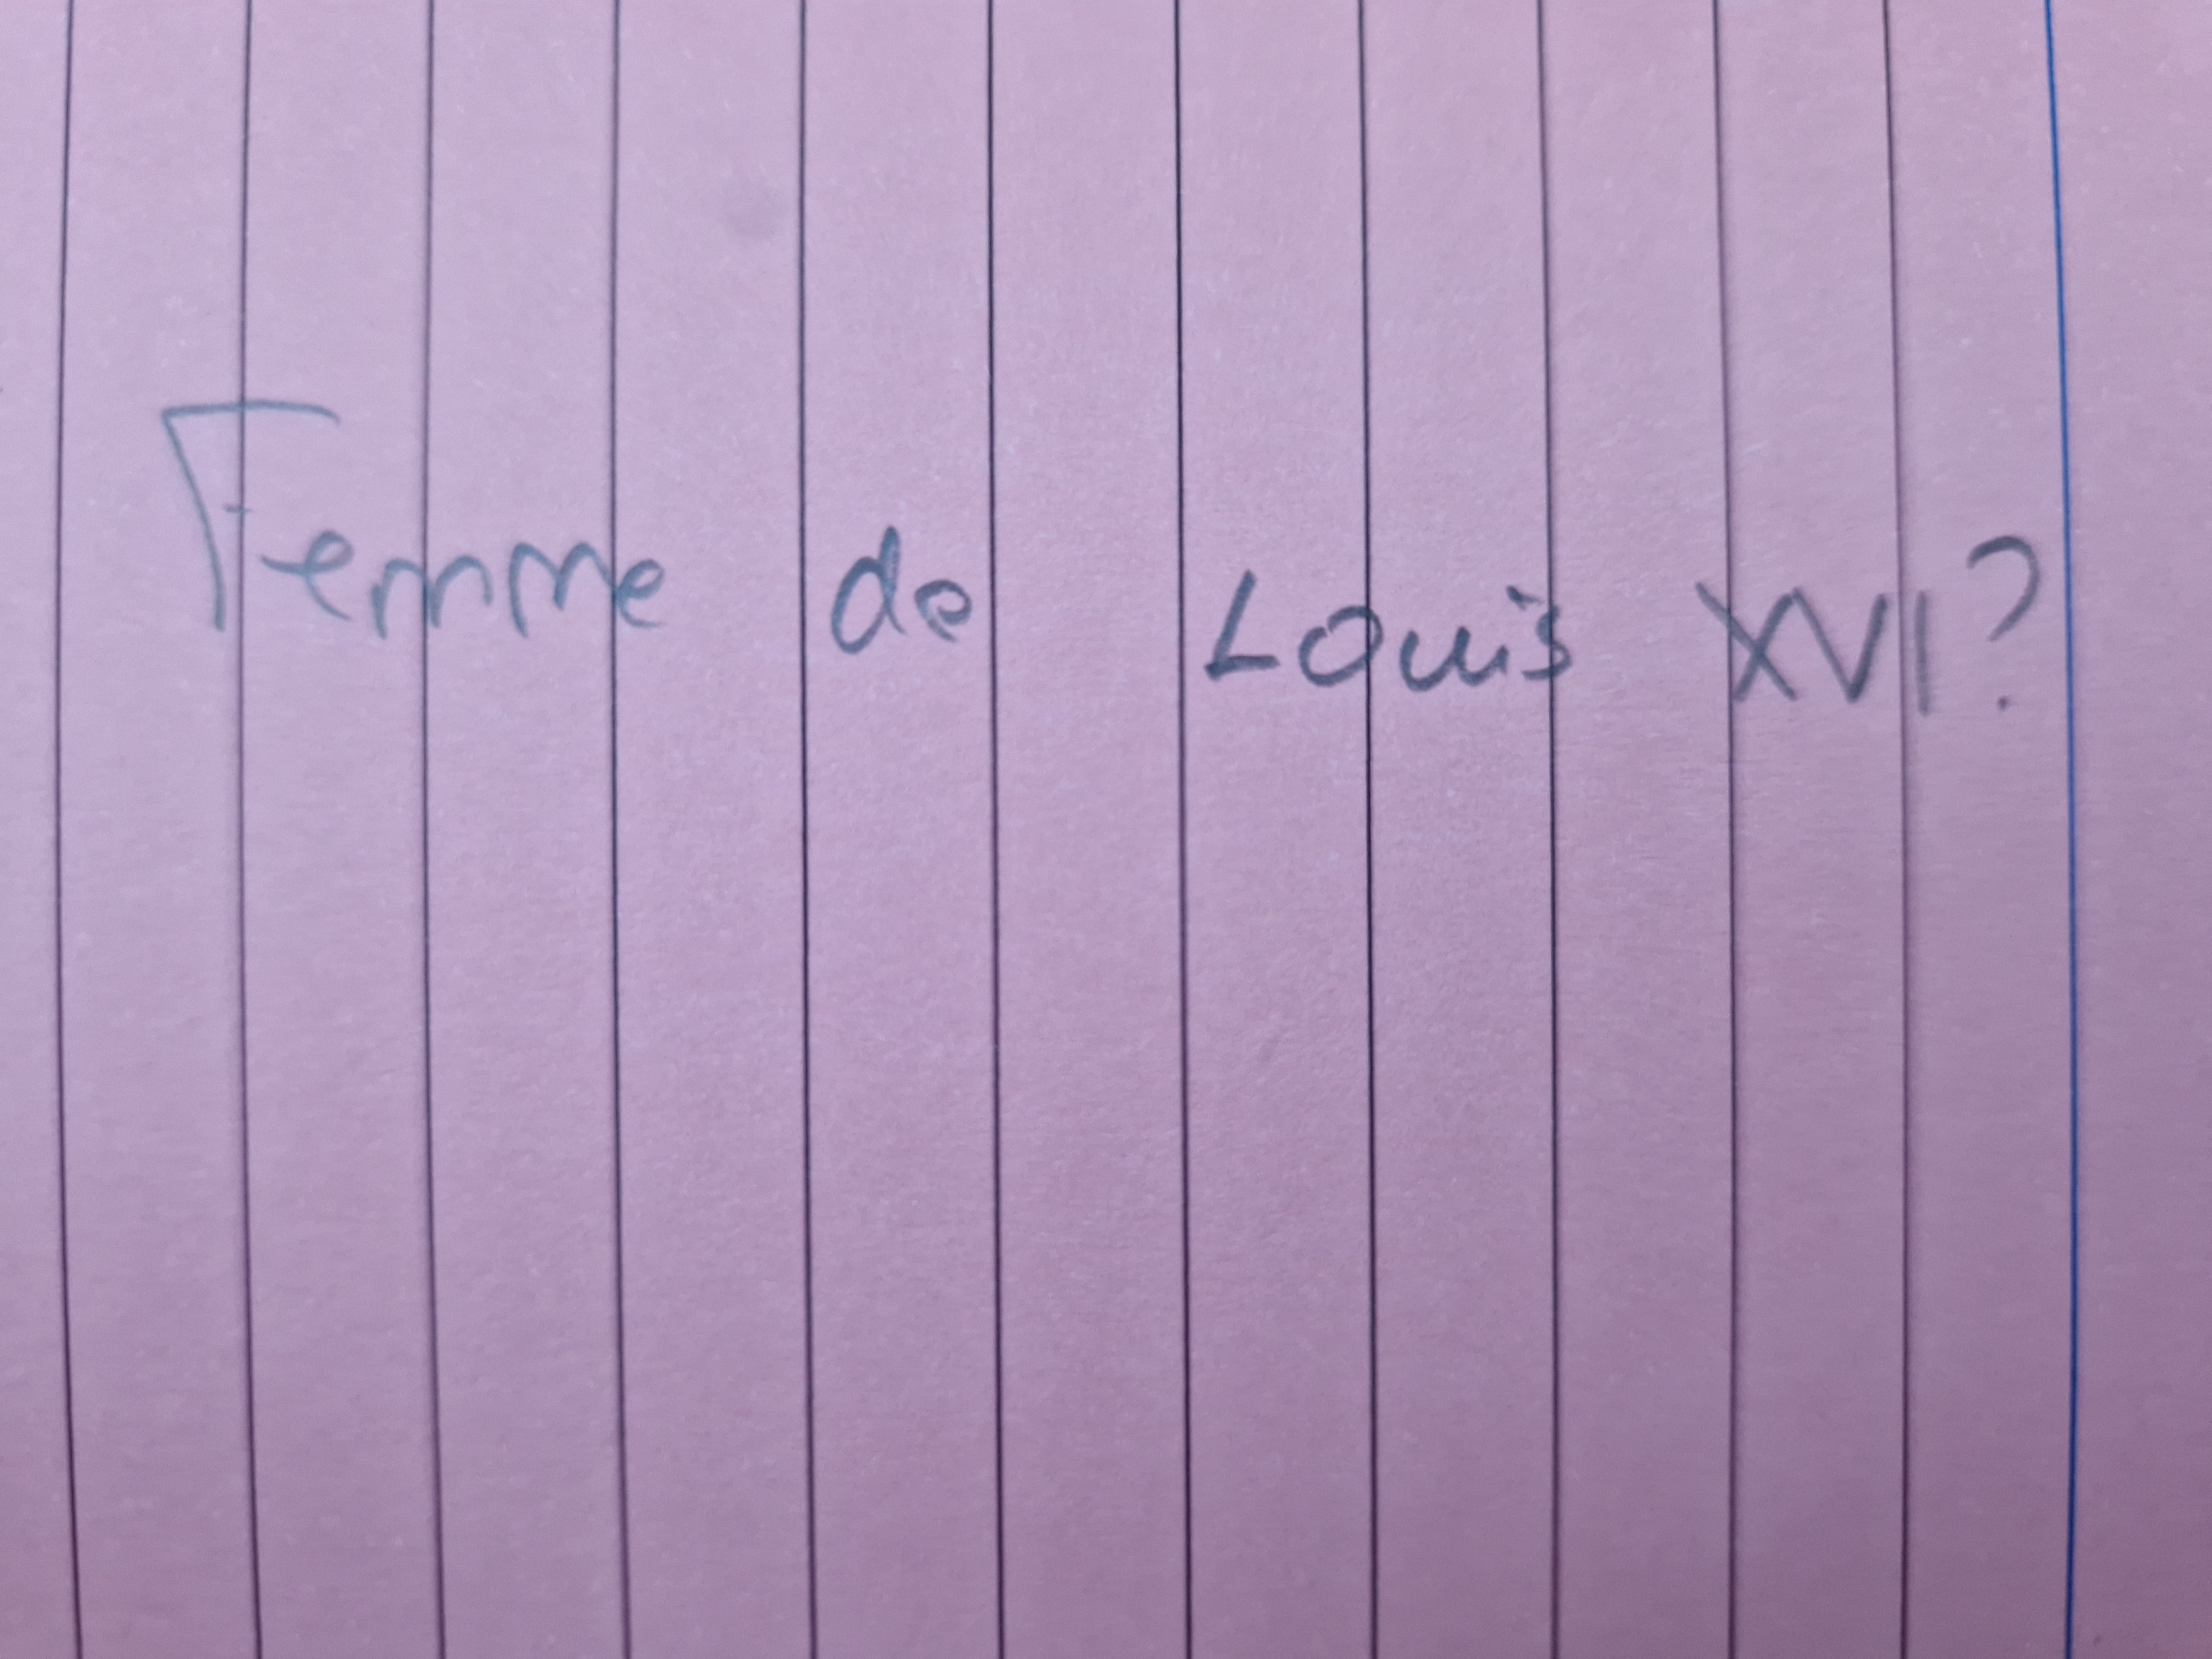 Femme de Louis XVI?